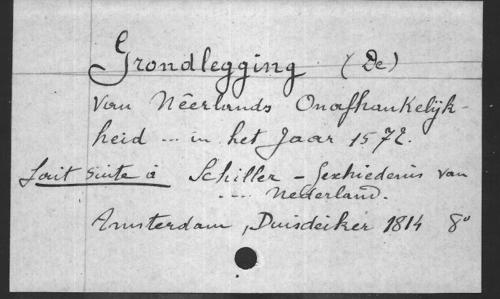 Grondlegging (De)
van Nêerlands Onafhankelijk-
heid ... in het Jaar 1572.
fait suite à Schiller - Geschiedenis van
.... Nederland.
Amsterdam, Duisdeiker 1814 8°